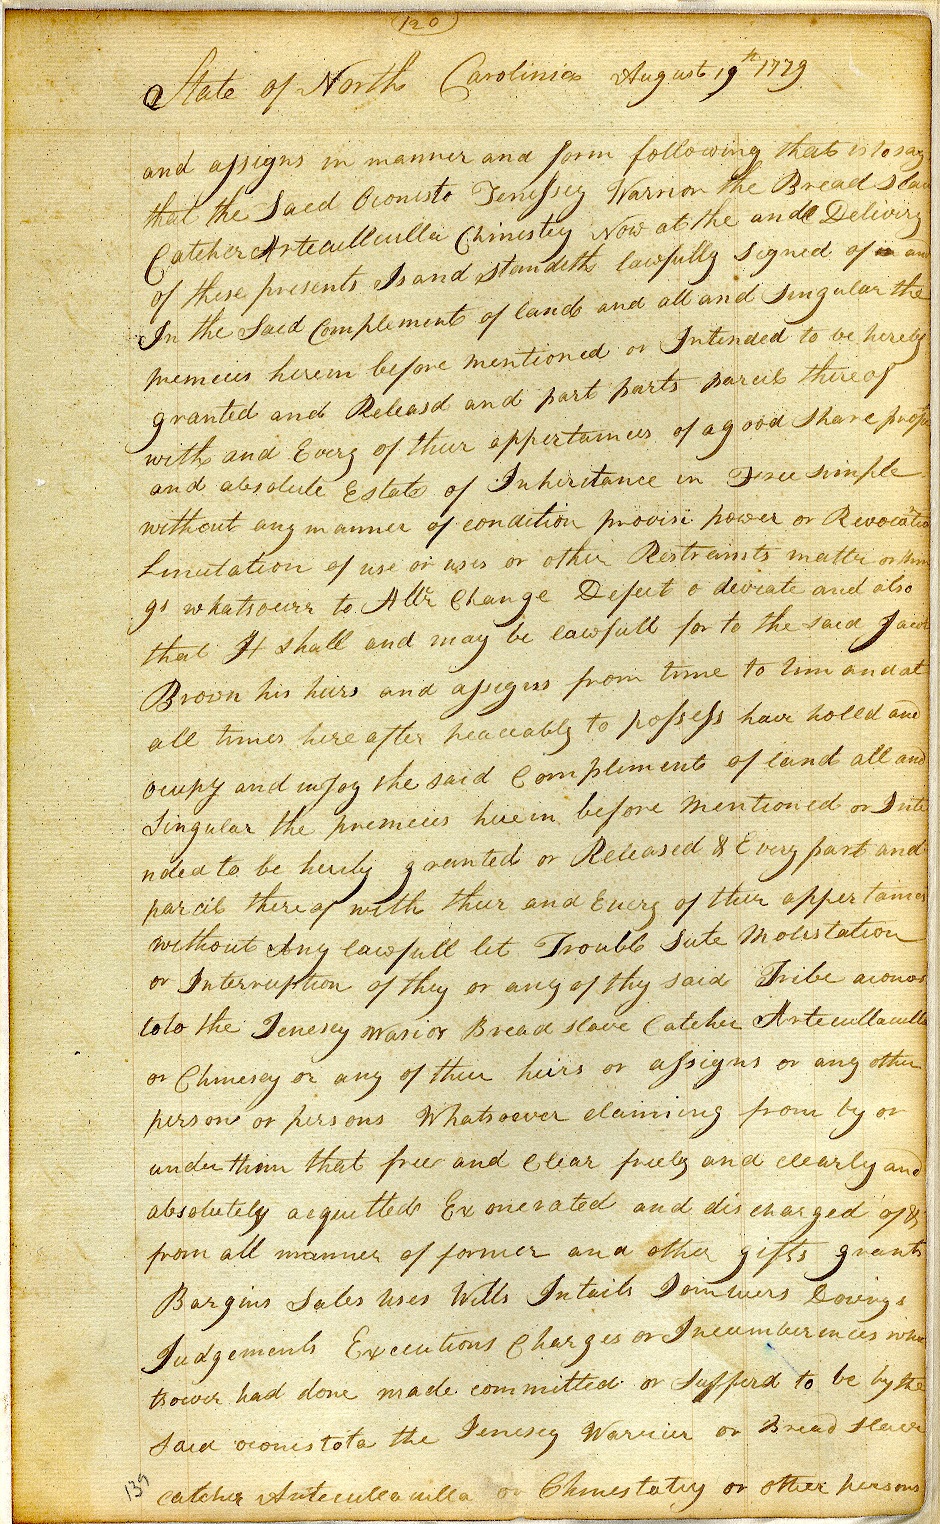 120
State of North Carolinia August 19th 1779
and assigns in manner and form following that is to say
that the Said Oconisto Tenessey Warrior the Bread Slave
Catcher Artecullculla Chinestey Now at the and Delivery
of these presents Is and Standeth lawfully Signed of in and
In the Said Complement of land and all and Singular the
premeces herein before mentioned or Intended to be hereby
granted and Releasd and part parts parcil thereof
with and Every of their appertances of a good Share
and absolute Estate of Inheritance in Free Simple
without any manner of condition provisi power or Revocatio
Limitation of use or uses or other Restraints matter or
gs whatsoever to Altr Change Defeet o deviate and also
that It shall and may be lawfull for to the said Jacob
Brown his heirs and assigns from time to tim and at
all times here after peaceably to possess have holed and
ocupy and injoy the said Compliment of land all and
Singular the premeces herein before Mentioned or Inte
nded to be hereby granted or Released & Every part and
parcil thereof with their and Every of their appertainces
without Any lawfull let Troubl Sute Molistation
or Interruption of they or any of thy said Tribe aconos
toto the Tenesey Warior Bread slave Catcher Artecullaculla
or Chinesey or any of their heirs or assigns or any other
person or persons Whatsoever claiming from by or
under them that free and Clear freely and clearly and
absolutely acquitted Exonerated and discharged of &
from all manner of former and other gifts grants
Bargins Sales uses Wills Intails Joinuers Dowings
Judgements Executions Charges or Incumberences what
tsover had done made committed or Sufferd to be by the
Said oconestota the Tenesey Warrier or Bread Slave
139 catcher Artecullaculla or Chinestatey or other persons